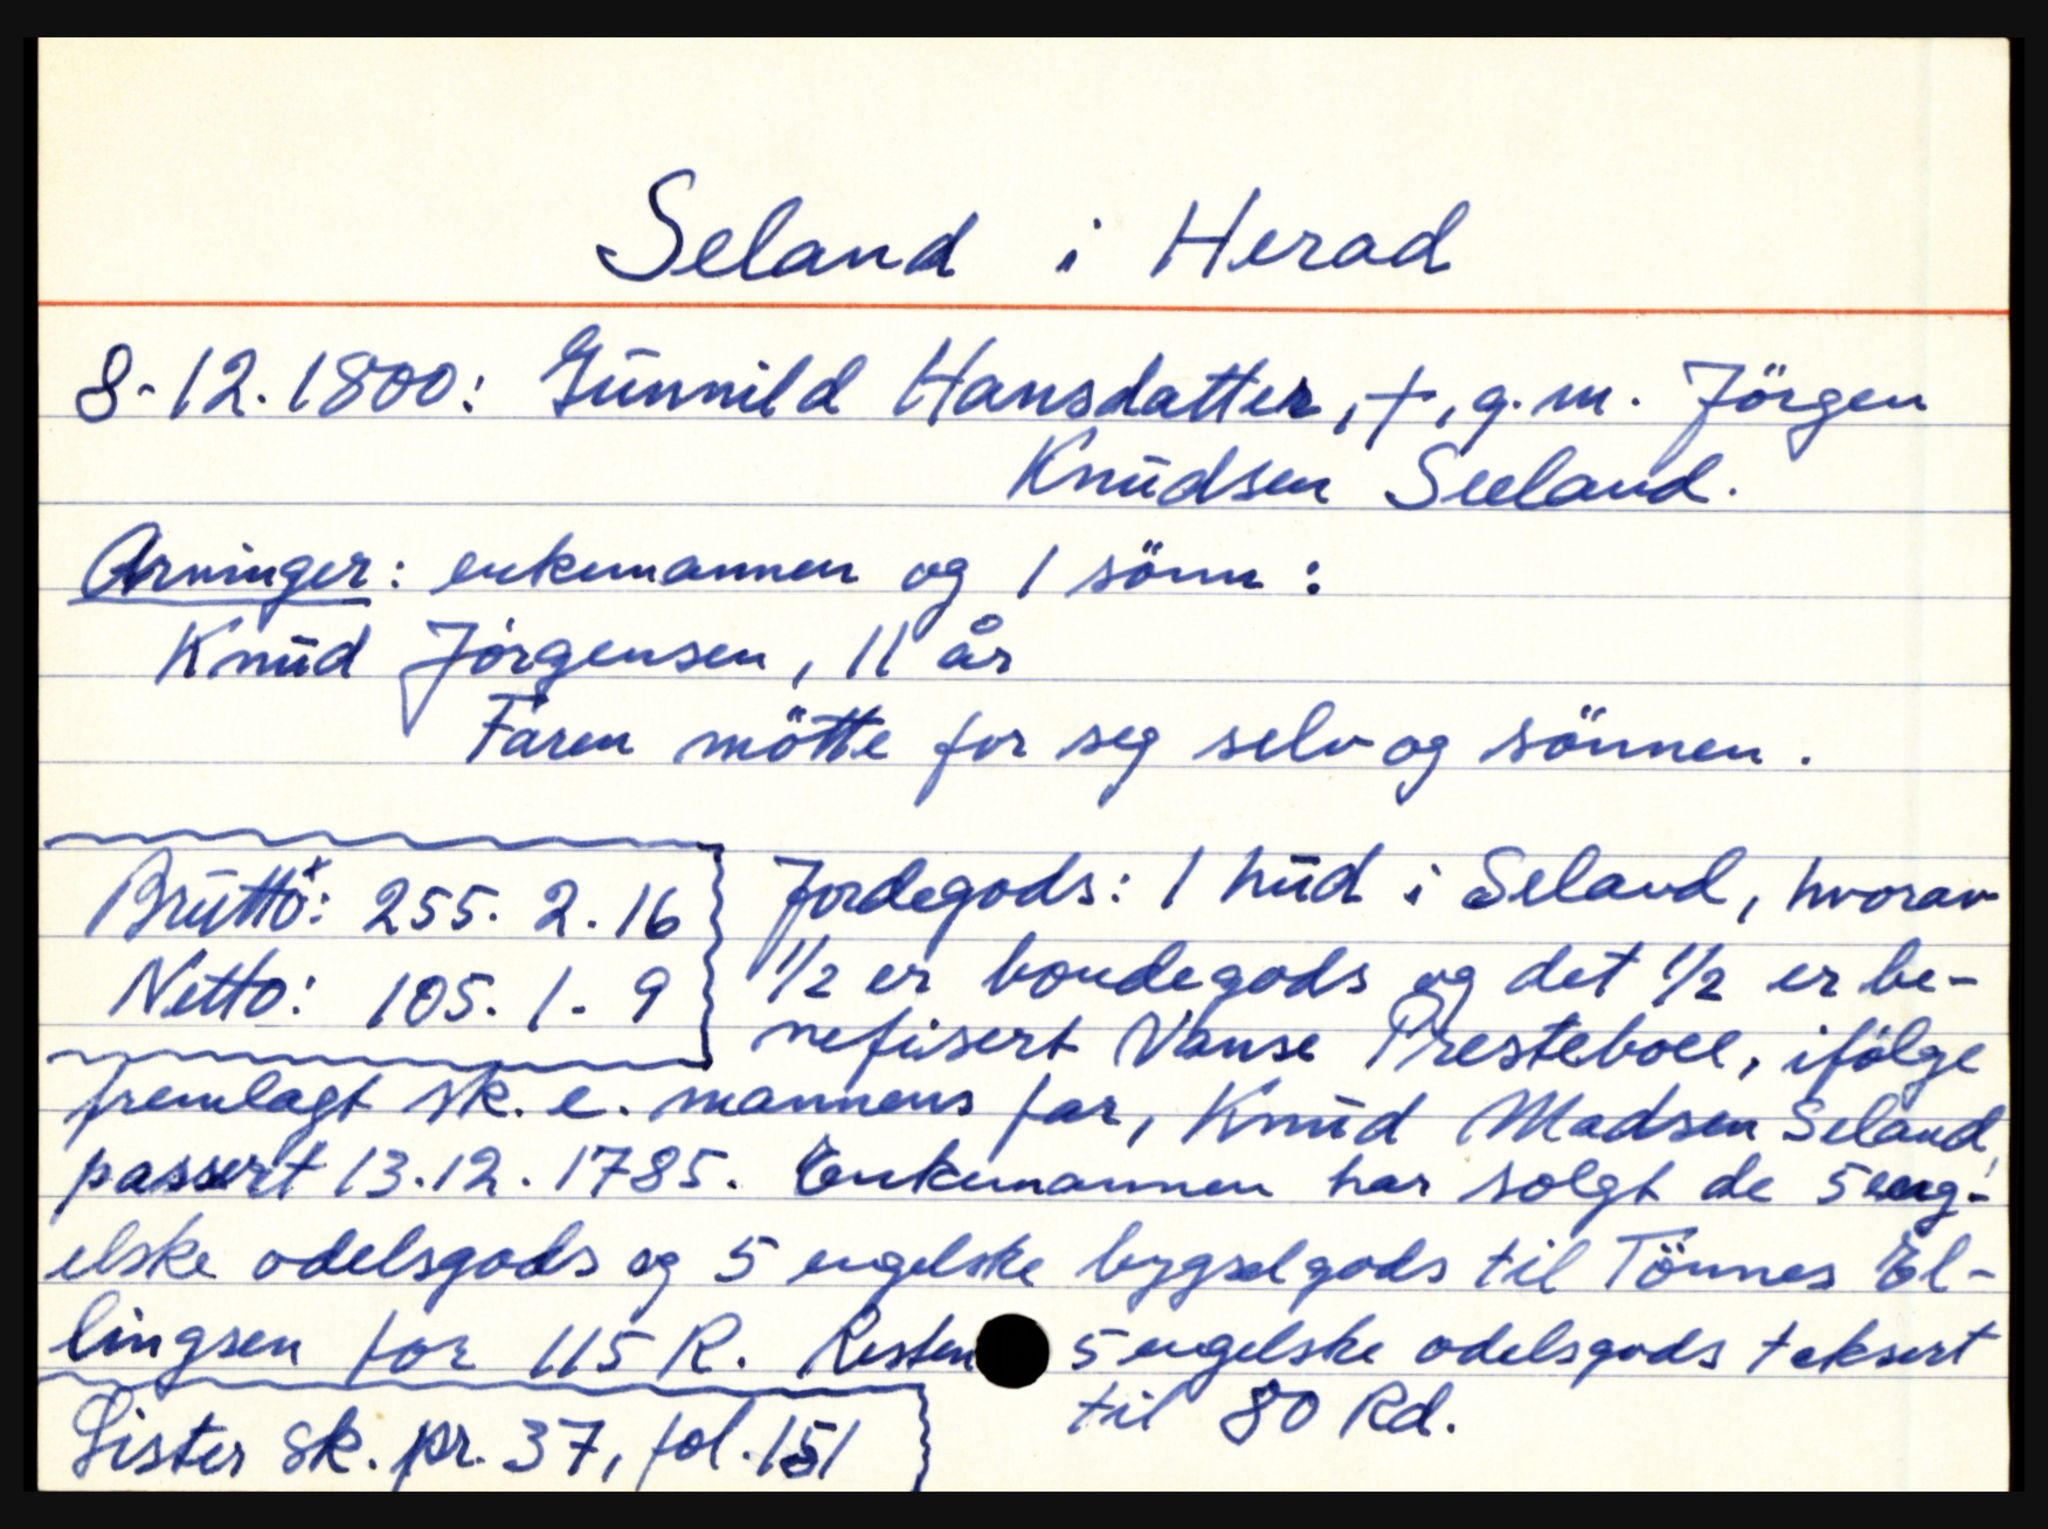 Seland i Herad
8-12.1800: Gunnild Hansdatter, †, g.m. Jörgen
Knudsen Seeland.
Arvinger: enkemannen og 1 sönn:
Knud Jörgensen, 11 år
Faren mötte for seg selv og sönnen.
Brutto x: 255. 2. 16
Netto: 105. 1. 9
Jordegods: 1 hud i Seland, hvorav
1/2 er bondegods og det 1/2 er be-
nefisert Vanse Presteboel, ifölge
fremlagt sk. e. mannens far, Knud Madsen Seland,
passert 13.12.1785. Enkemannen har solgt de 5 eng-
elske odelsgods og 5 engelske bygselgods til Tönnes El-
lingsen for 115 R. Resten 5 engelske odelsgods taksert
til 80 Rd.
Lister sk. pr. 37, fol. 151